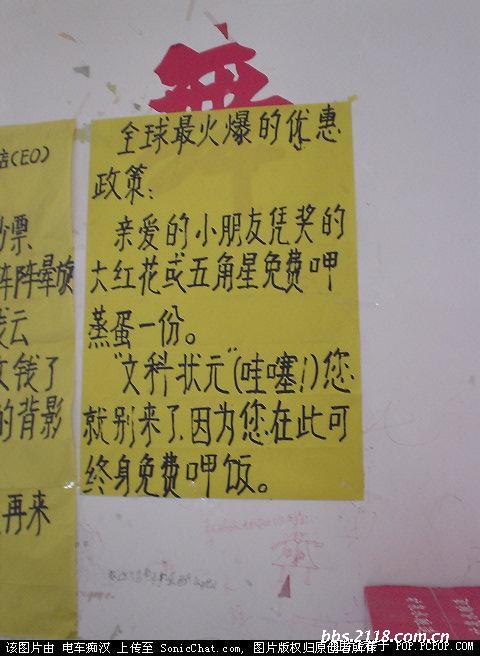 全球最火爆的优惠
政策：
亲爱的小朋友凭奖的
大红花或五角星免费呷
蒸蛋一份。
"文科状元"(哇噻!)您
就别来了.因为您在此可
终身免费呷饭。
店(EO)
钞票
阵阵晕旋
钱云
文钱了
的背影
再来
bbs.2118.com.cn
该图片由 电车痴汉 上传至 SonicChat.com, 图片版权归原作者所有 POP.PCPOP.COM